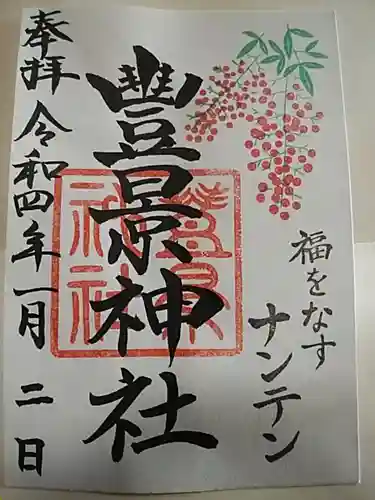 福をなす
ナンテン
豊景神社
奉拝 令和四年一月二日